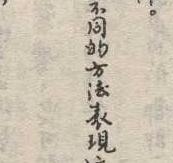 不同的方法表現